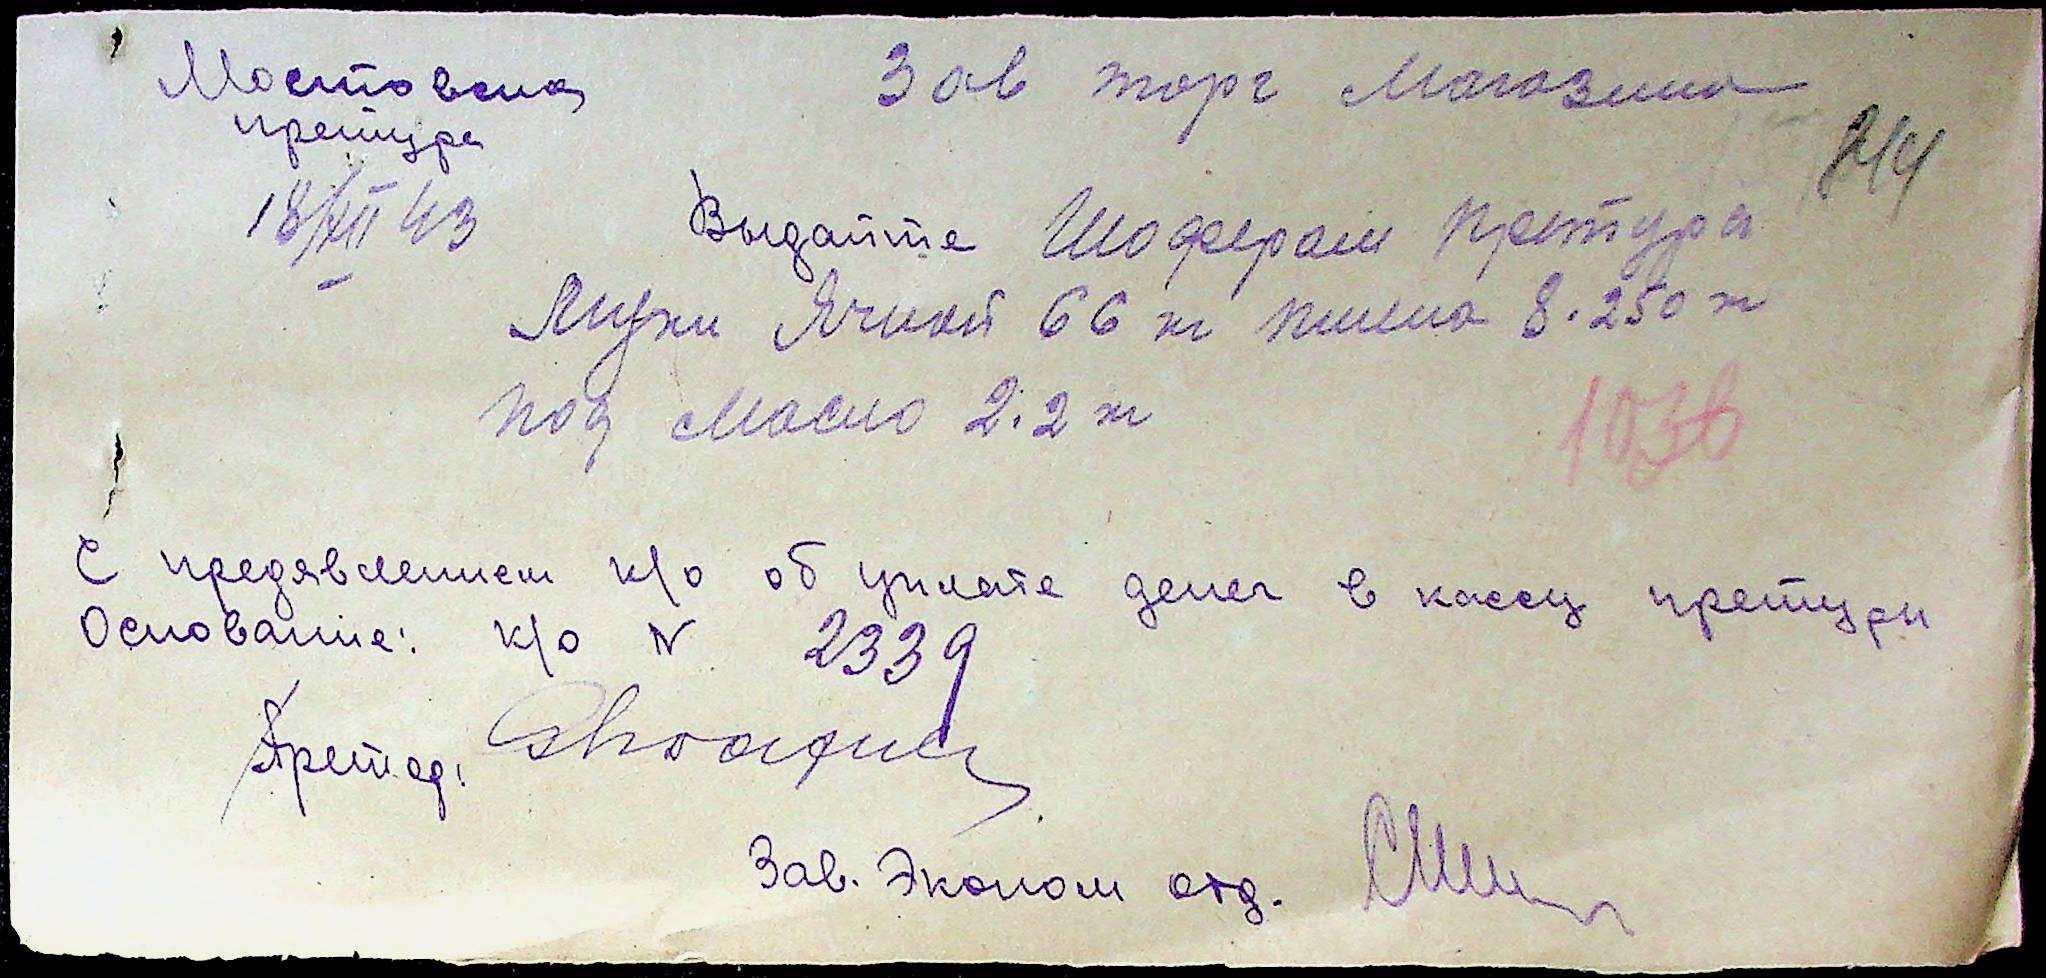 Мостовская
претура
18/XII 43
Зав торг Магазина
244
Выдайте Шоферам Претура
Муки Ячной 66 кг пшена 8.250 кг
под Масло 2.2 кг
С предявлением к/о об уплате денег в кассу претуры
Основание: к/о N 2339
Претор:
Зав. Эконом отд.